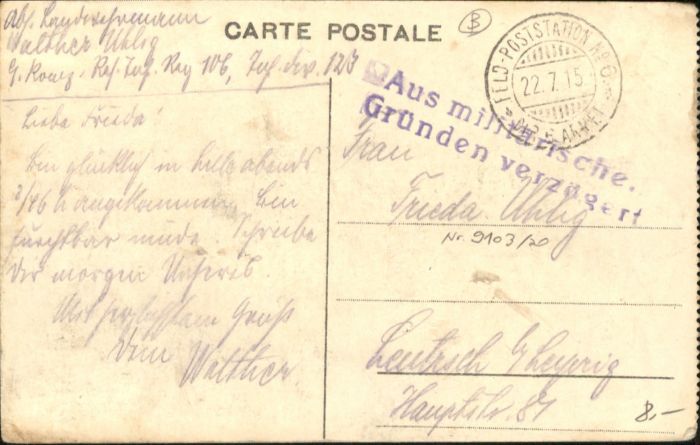 Abs. Landsturmmann
Walther Uhlig
9. Komp. Res. Inf. Reg 106, Inf. Div. 123
CARTE POSTALE
B
FELD-POSTSTATION No
22.7.15
ARMEE
Aus militärische.
Gründen verzögert
Liebe Frieda!
Bin glücklich in Lille abends
angekommen. Bin
furchtbar müde. Schreibe
Dir morgen
Mit herzlichem Gruß
Dein Walther.
Frau
Frieda Uhlig
Nr. 9103/20
Leutzsch b/Leipzig
Hauptstr. 81
8,-